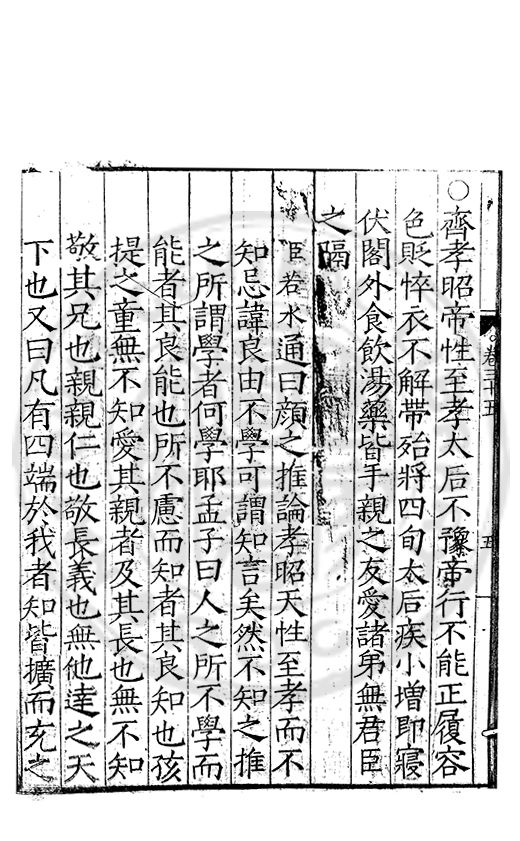 ○齊孝昭帝性至孝太后不豫帝行不能正履容
色貶悴衣不解帶殆將四旬太后疾小增即寢
伏閤外食飲湯藥皆手親之友愛諸弟無君臣
之隔
臣若水通曰顔之推論孝昭天性至孝而不
知忌諱良由不學可謂知言矣然不知之推
之所謂學者何學耶孟子曰人之所不學而
能者其良能也所不慮而知者其良知也孩
提之童無不知愛其親者及其長也無不知
敬其兄也親親仁也敬長義也無他達之天
下也又曰凡有四端於我者知皆擴而充之
卷三十五
五